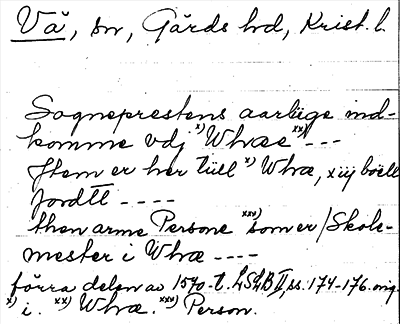 Vä, sn, Gärds hd, Krist. l.
Sogneprestens aarliige ind-
komme vdj x) Whæ xx) ---
Item er her tiill x) Whæ, xiij boell
jordtt ----
then arme Persone xxx) som er / Skole-
mester i Whæ ----
förra delen av 1570-t. LSkB II, ss. 174-176. orig.
x) i. xx) Whæ. xxx) Person.